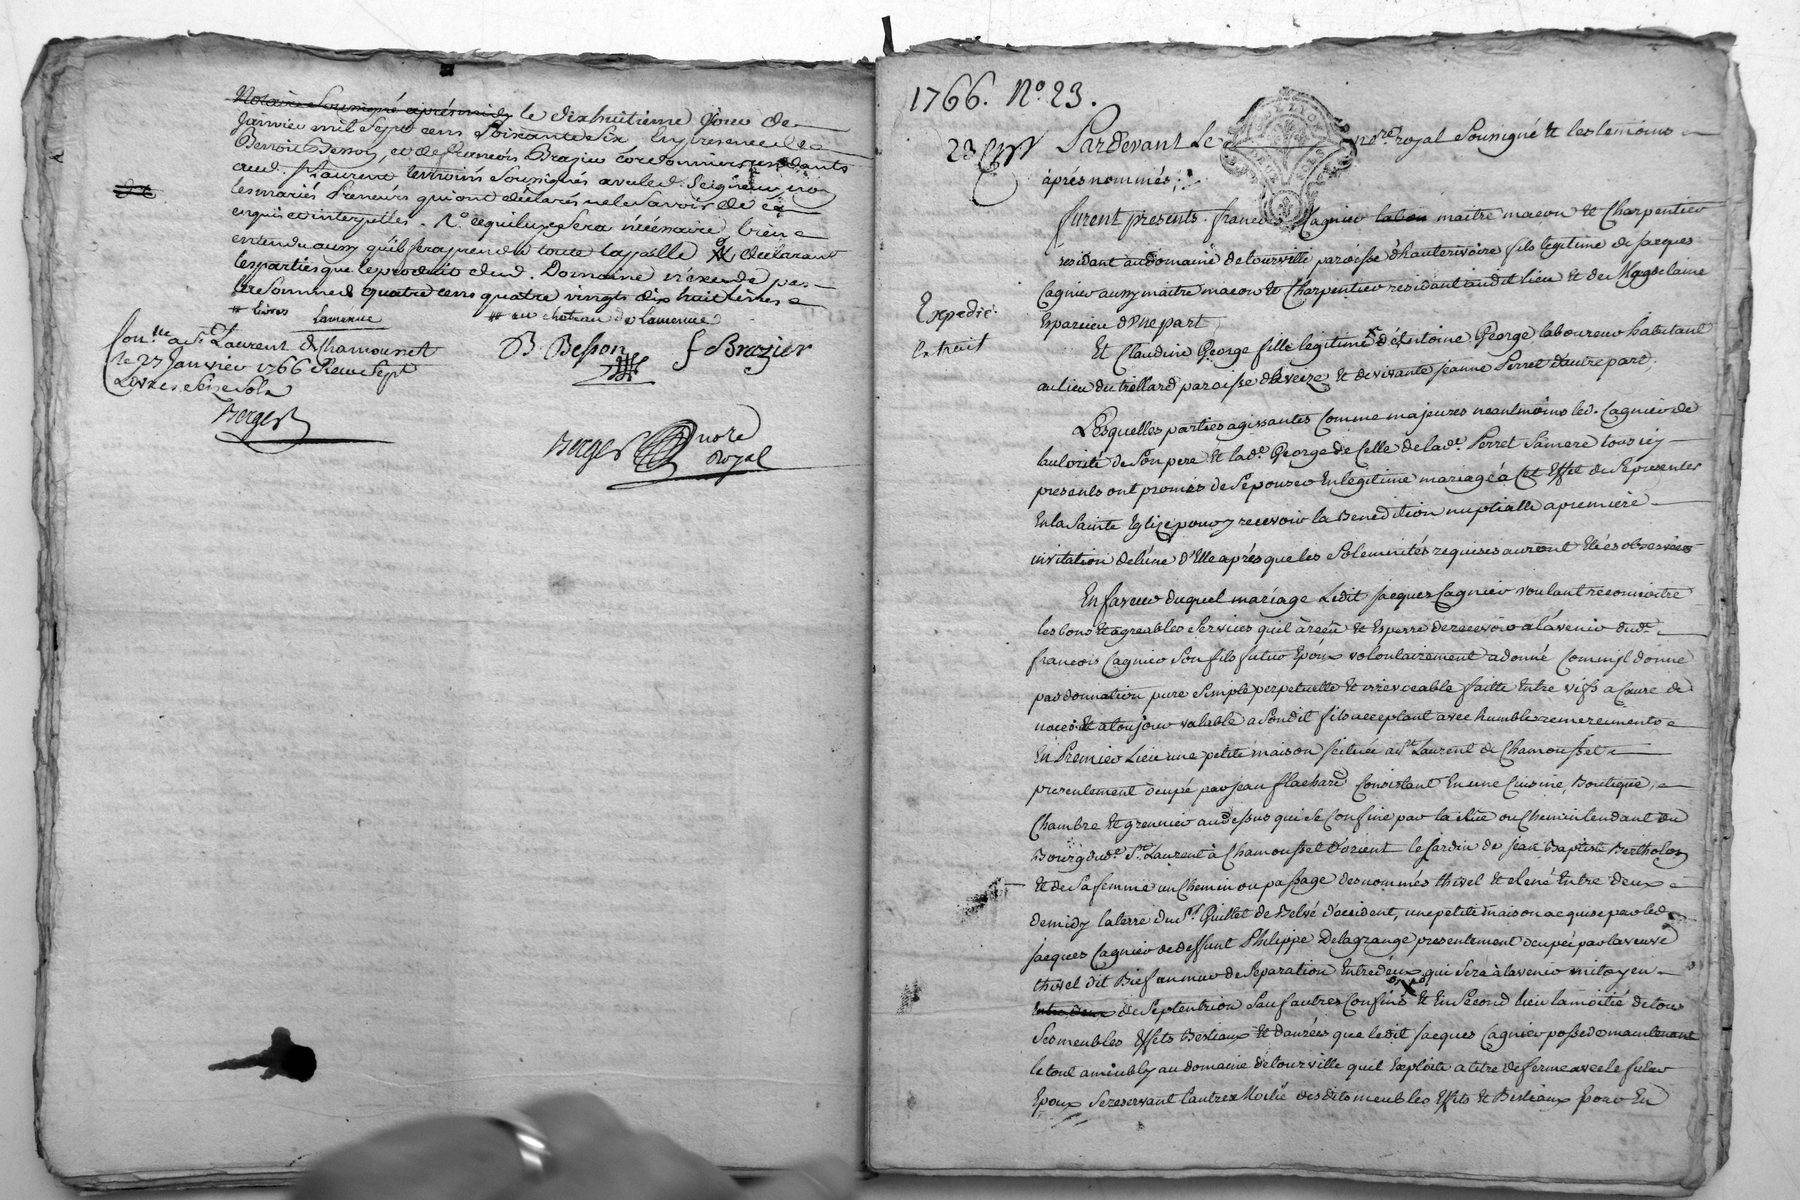 Notaire Sousigné aprés midy le dixhuitieme jour de
janvier mil sept cens soixante six En presence de
Benoit Besson, et de francois Brazier cordonniers residants
aud. St Laurent temoins sousignés avec led. seigneur, non
les mariés Preneurs qui ont déclarés ne le savoir de ce
enquis et interpellés.
entendu aussy quil sera prendu toute la paille déclarant
les parties que le produit dud. Domaine n'excede pas
la somme de quatre cens quatre vingts dix huit livres
livres Lamenue
au chateau de Lamenue
Con.lle a St Laurent de Chamousset
le 27 Janvier 1766 Recu sept
Livres seize sols
Berger
B. Besson f Brazier
Berger nore
Royal
1766. No. 23.
23
Pardevant Le nore royal sousigné et les temoins
aprés nommés,
furent presents francois Cagnier maitre macon et Charpentier
residant au domaine de tourville paroisse d'hauterivoire fils legitime de jacques
Cagnier aussy maitre macon et Charpentier residant audit lieu et de Magdelaine
Esparcieu d'Une part
Expedié
Extrait
Et Claudine George fille legitime d'Antoine George laboureur habitant
au lieu du trellard paroisse d'Aveize et de vivante jeanne Perret d'autre part,
Lesquelles parties agissantes Comme majeures neantmoins led. Cagnier de
lautorité de son pere et lad.e George de Celle de lad.e Perret sa mere tous icy
presents ont promis de sepouser En legitime mariage á Cet Effet de se presenter
En la Sainte Eglize pour y recevoir la Benediction nuptialle a premiere
invitation de lune d'Elle aprés que les solemnités requises auront Etées observées
En faveur duquel mariage Ledit jacques Cagnier voulant reconnoitre
les bons et agreables services quil à reçu et Esperre de recevoir a lavenir dud.
francois Cagnier son fils futur Epoux volontairement a donné Comm'il donne
par donnation pure simple perpetuelle et irrevocable faitte Entre vifs a Cause de
noces et a toujour valable a sondit fils acceptant avec humbles remerciments
En Premier Lieu une petite maison scituée a St Laurent de Chamousset
presentement ocupé par jean flachard Consistant En une Cuisine, Boutique,
Chambre et grennier au dessus qui se Confine par la Rue ou Chemin tendant du
Bourg dud. St Laurent à Chamousset d'orient le jardin de jean Baptiste Bertholon
et de sa femme un Chemin ou passage des nommés thivel et René Entre deux
de midy la terre du Sr. Quillet de Belvé d'occident, une petite maison acquise par led.
jacques Cagnier de deffunt Philippe Delagrange presentement ocupée par la veuve
thivel dit Bief un mur de separation Entre deux qui sera à lavenir mitoyen
Entre deux de septentrion sauf autres Confins Et En second lieu la moitié de tous
ses meubles Effets Bestiaux et danrées que ledit jacques Cagnier possede maintenant
le tout a méubly au domaine de tourville quil Exploite a titre de ferme avec le futur
Epoux se reservant lautre Moitié desdits meubles Effets et Bestiaux pour En